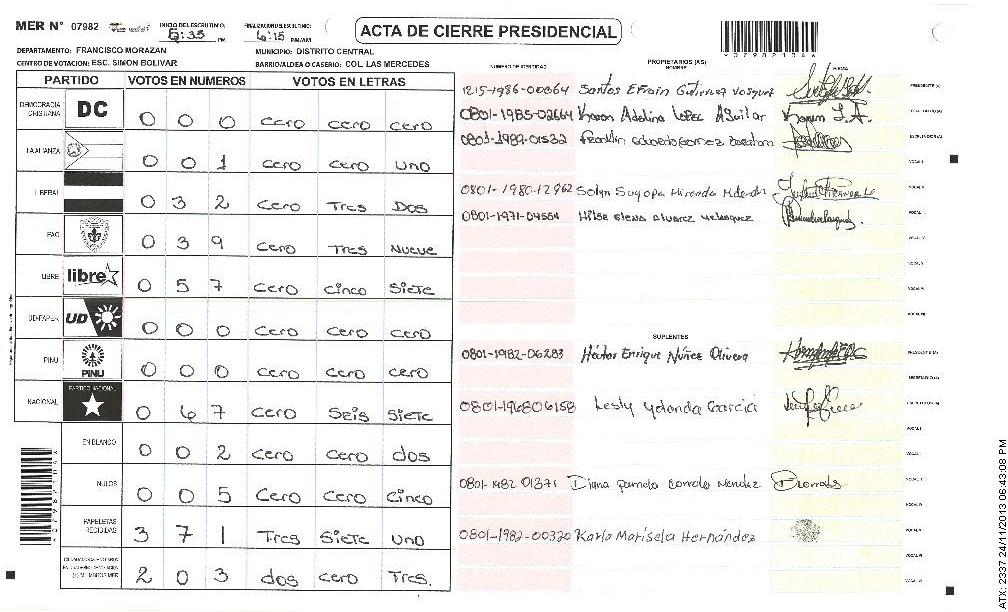 MER N° 07982
INICIO DEL ESCRUTINIO: 5:35 PM
FINALIZACION DEL ESCRUTINIO: 6:15 PM/AM
ACTA DE CIERRE PRESIDENCIAL
DEPARTAMENTO: FRANCISCO MORAZAN
MUNICIPIO: DISTRITO CENTRAL
CENTRO DE VOTACION: ESC. SIMON BOLIVAR
BARRIO/ALDEA O CASERIO: COL LAS MERCEDES
PARTIDO VOTOS EN NUMEROS VOTOS EN LETRAS
DEMOCRACIA CRISTIANA DC 0 0 0 cero cero cero
LA ALIANZA 0 0 1 cero cero uno
LIBERAL 0 3 2 cero Tres Dos
PAC 0 3 9 cero Tres Nueve
LIBRE libre 0 5 7 cero cinco siete
UD-FAPER UD 0 0 0 cero cero cero
PINU PINU 0 0 0 cero cero cero
NACIONAL PARTIDO NACIONAL 0 6 7 cero seis siete
EN BLANCO 0 0 2 cero cero dos
NULOS 0 0 5 cero cero cinco
PAPELETAS RECIBIDAS 3 7 1 Tres siete uno
2 0 3 dos cero Tres.
NUMERO DE IDENTIDAD
PROPIETARIOS (AS)
NOMBRE
FIRMA
1215-1986-00064 Santos Efrain Gutierrez Vasquez PRESIDENTE (A)
0801-1985-02664 Karen Adelina Lopez Aguilar
0801-1987-01532 Franklin
0801-1980-12962 Solyn Suyapa Miranda
0801-1971-04554 Hilse Elena Alvarez Velasquez
SUPLENTES
0801-1982-06283 Héctor Enrique Núñez Olivera PRESIDENTE (A)
0801-196806158 Lesly Yolanda Garcia
0801-1982 01371 Diana Pamela Mendez
0801-1982-00320 Karla Marisela Hernández
ATX: 2337 24/11/2013 06:43:08 PM